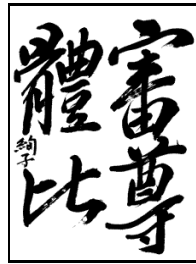 審尊
體比
絢子